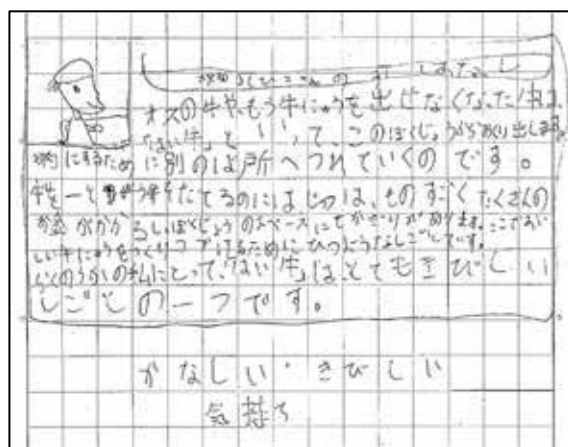 のお はなし
オスの牛や、もう牛にゅうを出せなくなった牛は、
「はい牛」といって、このぼくじょうからおくり出します。
肉にするために別のは所へつれていくのです。
牛を一と うそだてるのにはじつは、ものすごくたくさんの
お金がかかるし、ぼくじょうのスペースにもかぎりがあります。ここでおい
しい牛にゅうをつくりつづけるためにひつような しごとです。
らくのうかの私にとって、「はい牛」は、とてもきびしい
しごとの一つです。
かなしい・きびしい
気持ち